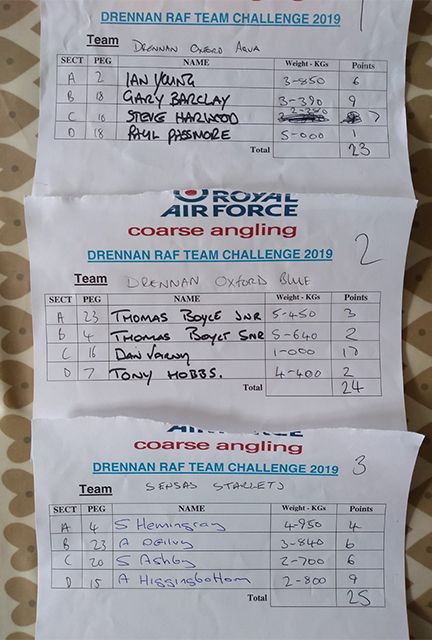 1
DRENNAN RAF TEAM CHALLENGE 2019
Team DRENNAN OXFORD AQUA
SECT PEG NAME Weight - KGs Points
A 2 IAN YOUNG 3-850 6
B 18 GARY BARCLAY 3-390 9
C 10 STEVE HARWOOD 7
D 18 PAUL PASSMORE 5-000 1
Total 23
ROYAL
AIR FORCE
coarse angling
DRENNAN RAF TEAM CHALLENGE 2019 2
Team DRENNAN OXFORD BLUE
SECT PEG NAME Weight - KGs Points
A 23 THOMAS BOYLE JNR 5-450 3
B 4 THOMAS BOYLE SNR 5-640 2
C 16 DAN 1-000 17
D 7 TONY HOBBS. 4-400 2
Total 24
AIR FORCE
coarse angling
DRENNAN RAF TEAM CHALLENGE 2019 3
Team SENSAS STARLETS
SECT PEG NAME Weight - KGs Points
A 4 S Hemingray 4-950 4
B 23 A Ogilvy 3-840 6
C 20 S Ashby 2-700 6
D 15 A Higginbottom 2-800 9
Total 25